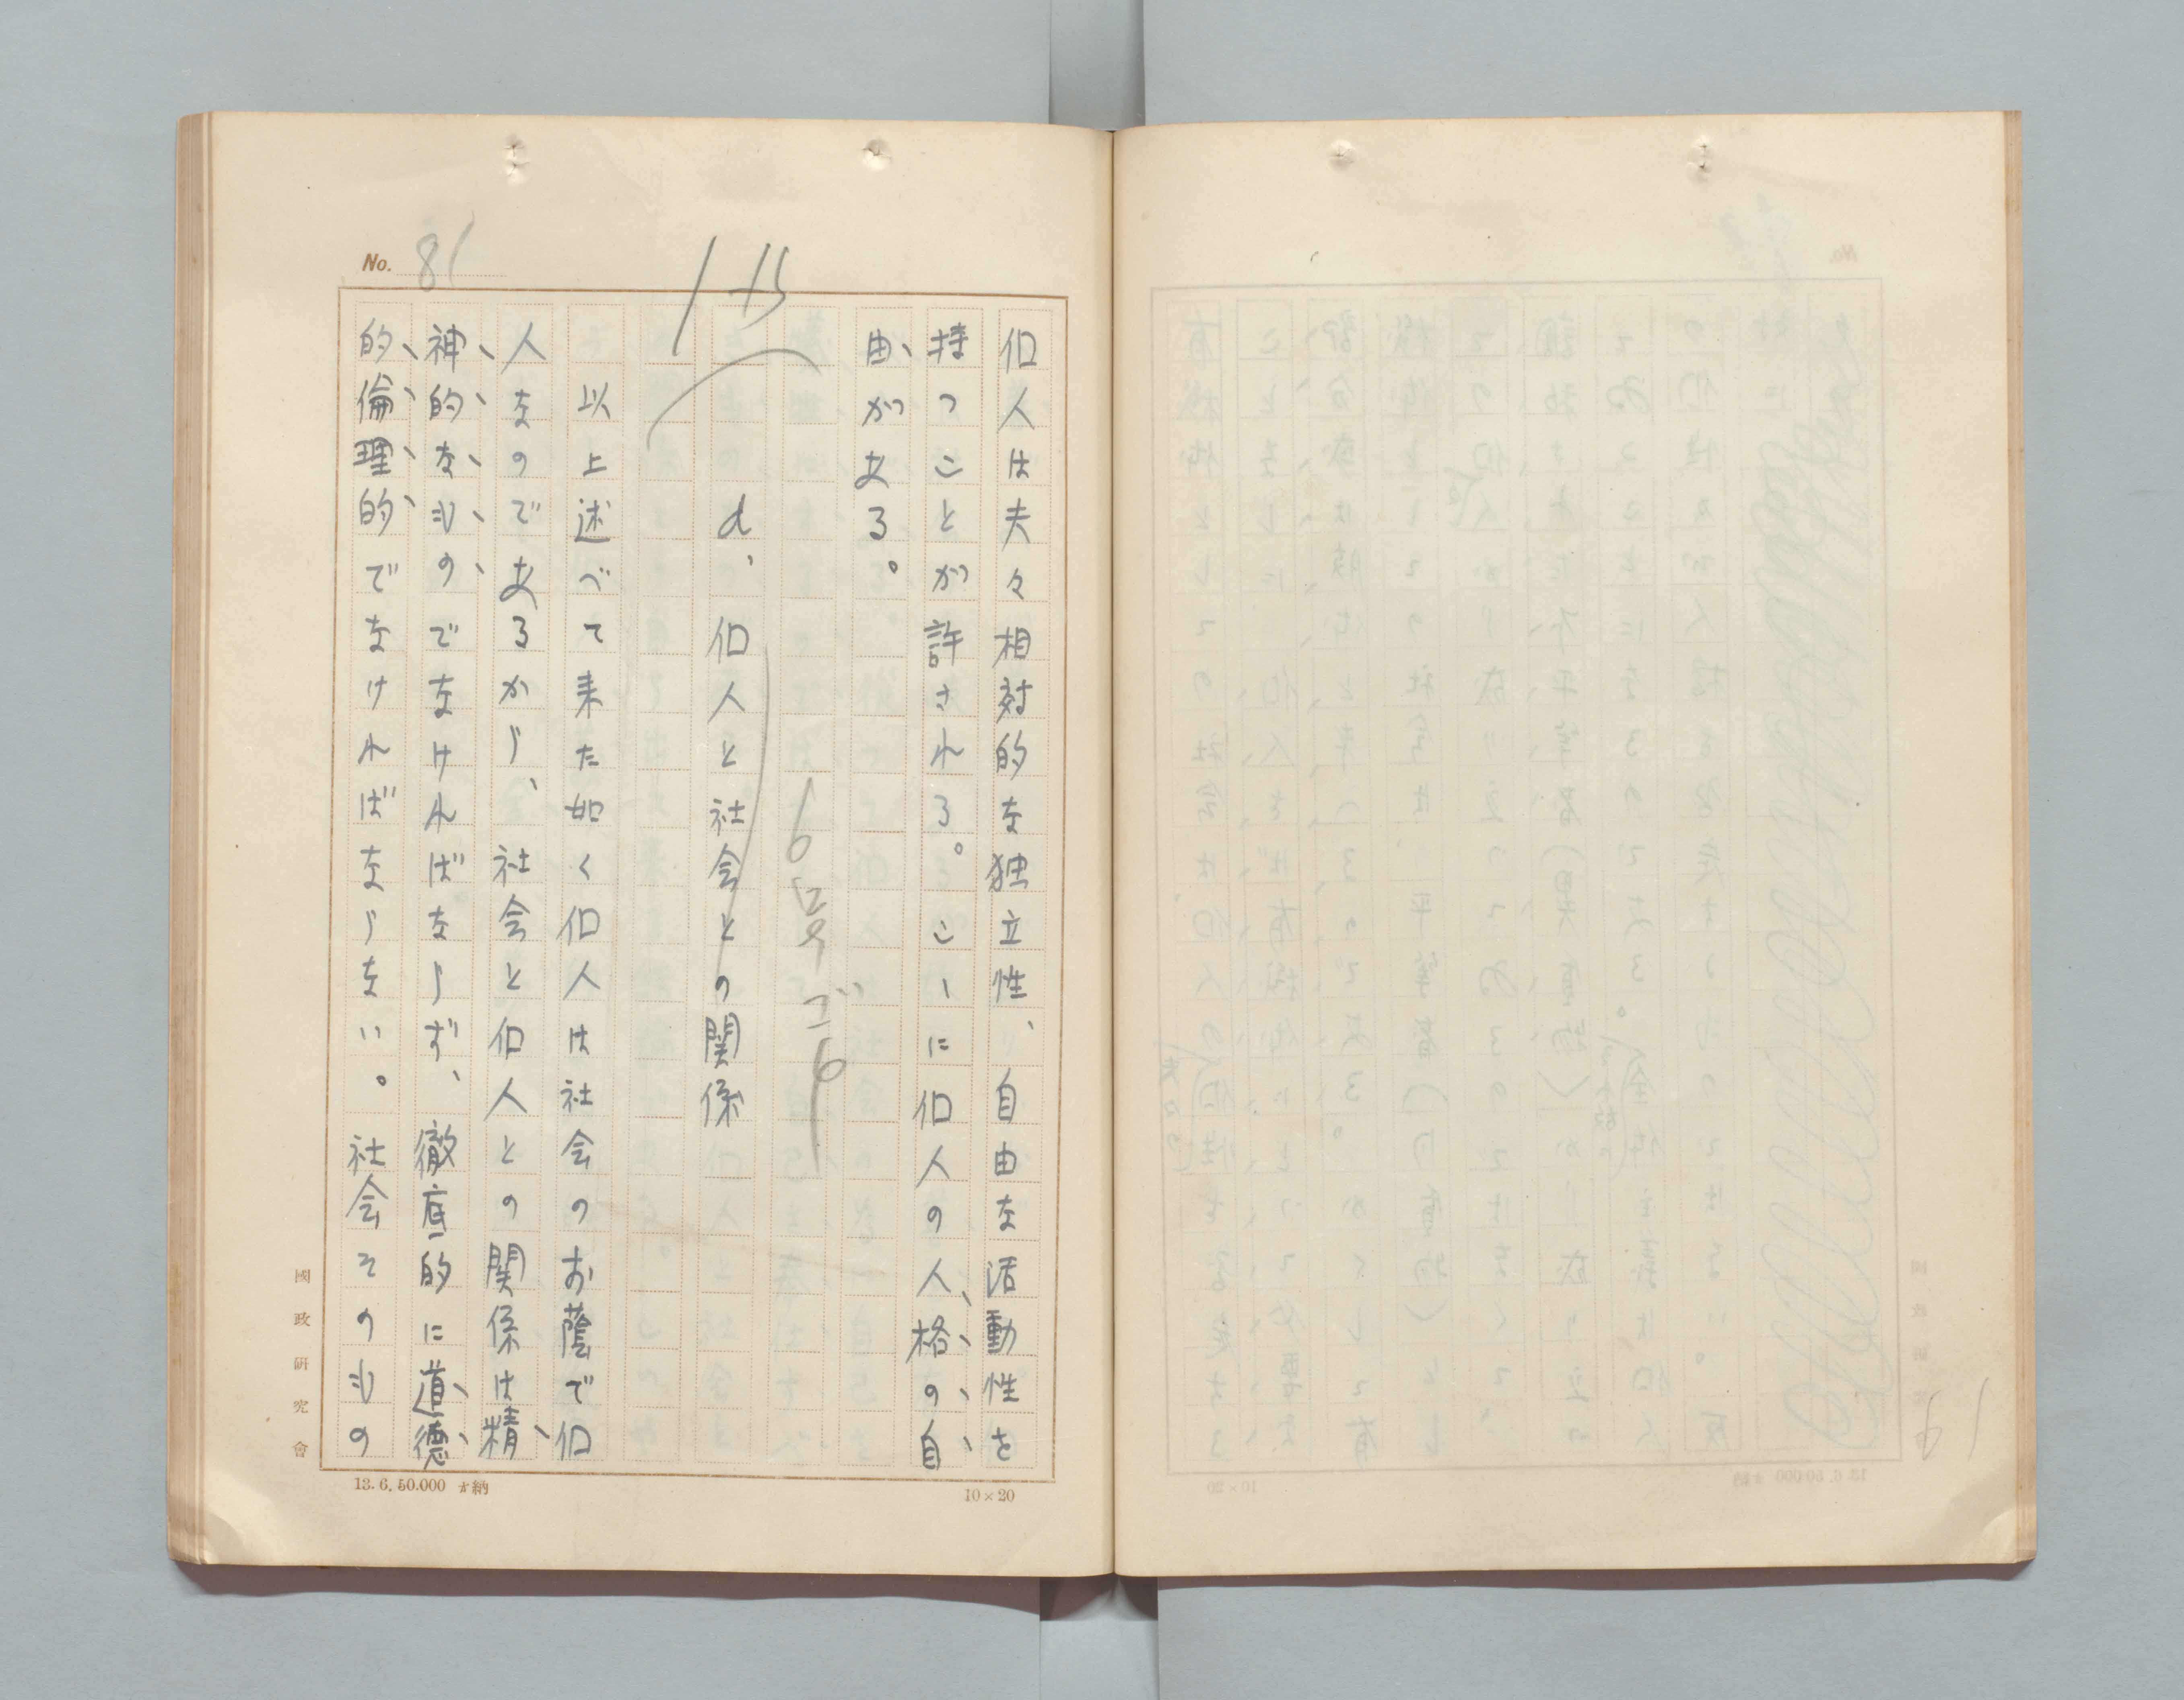 No. 81
個人は夫々相対的な独立性、自由な活動性を
持つことが許される。こゝに個人の人格の自
由がある。
d、個人と社会との関係
以上述べて来た如く個人は社会のお蔭で個
人なのであるから、社会と個人との関係は精
神的なものでなければならず、徹底的に道徳
的倫理的でなければならない。社会そのもの
國政研究會
13.6.50.000 才納
10×20